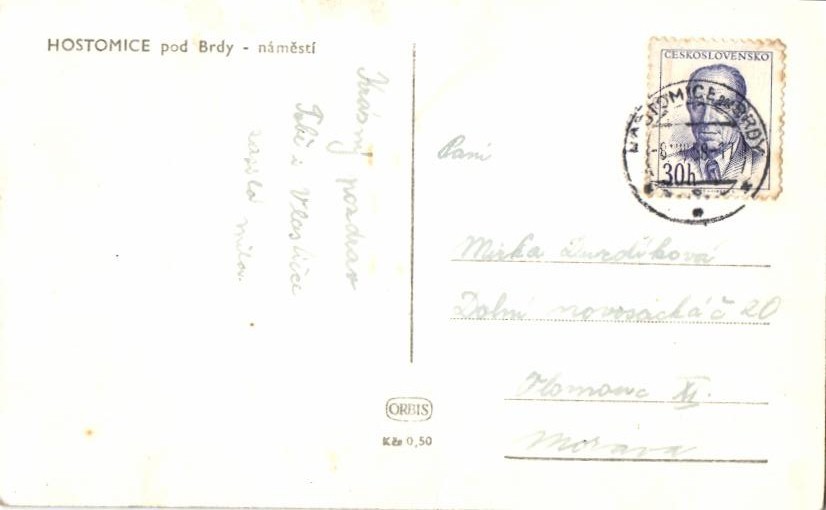 HOSTOMICE pod Brdy - náměstí
Krásný pozdrav
Tobě i Vlastičce
zasílá
ČESKOSLOVENSKO
30h
HOSTOMICE pod BRDY
Paní
Mirka Durdíková
Dolní novosadská č 20
Olomouc XI.
Morava
ORBIS
Kčs 0,50